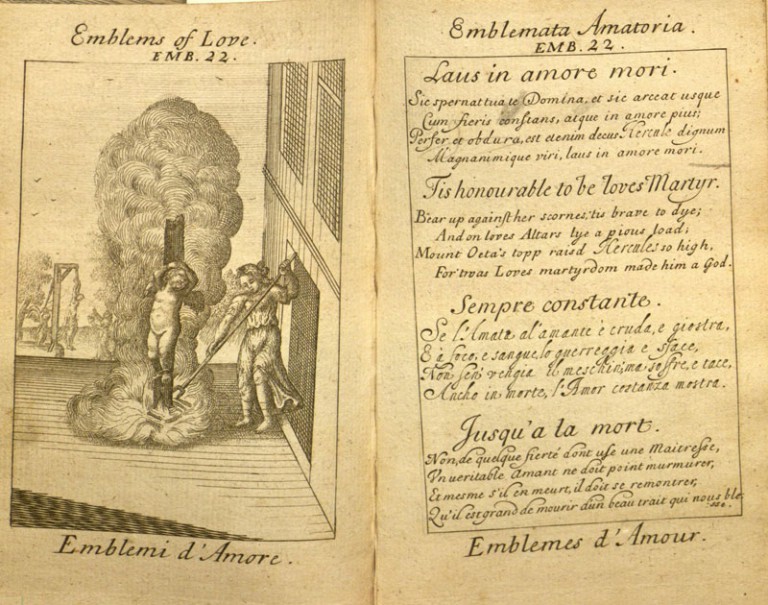 Emblems of Love.
EMB. 22.
Emblemi d'Amore.
Emblemata Amatoria.
EMB. 22.
Laus in amore mori.
Sic spernat tua te Domina, et sic arceat usque
Cum fieris constans, atque in amore pius;
Perfer et obdura, est etenim decus Hercule dignum
Magnanimique viri, laus in amore mori.
Tis honourable to be loves Martyr.
Bear up against her scornes, tis brave to dye;
And on loves Altars lye a pious load;
Mount Oeta's topp raisd Hercules so high,
For twas Loves martyrdom made him a God.
Sempre constante.
Se l'Amata al'amante è cruda, e giostra,
E à foco, e sangue, lo guerreggia e sface,
Non sen' vengia il meschin; ma soffre, e tace,
Anche in morte, l'Amor costanza mostra.
Jusqu'a la mort.
Non, de quelque fierté dont use une Maitresse,
Un veritable Amant ne doit point murmurer,
Et mesme s'il en meurt, il doit se remontrer,
Qu'il est grand de mourir d'un beau trait qui nous ble
sse.
Emblemes d'Amour.